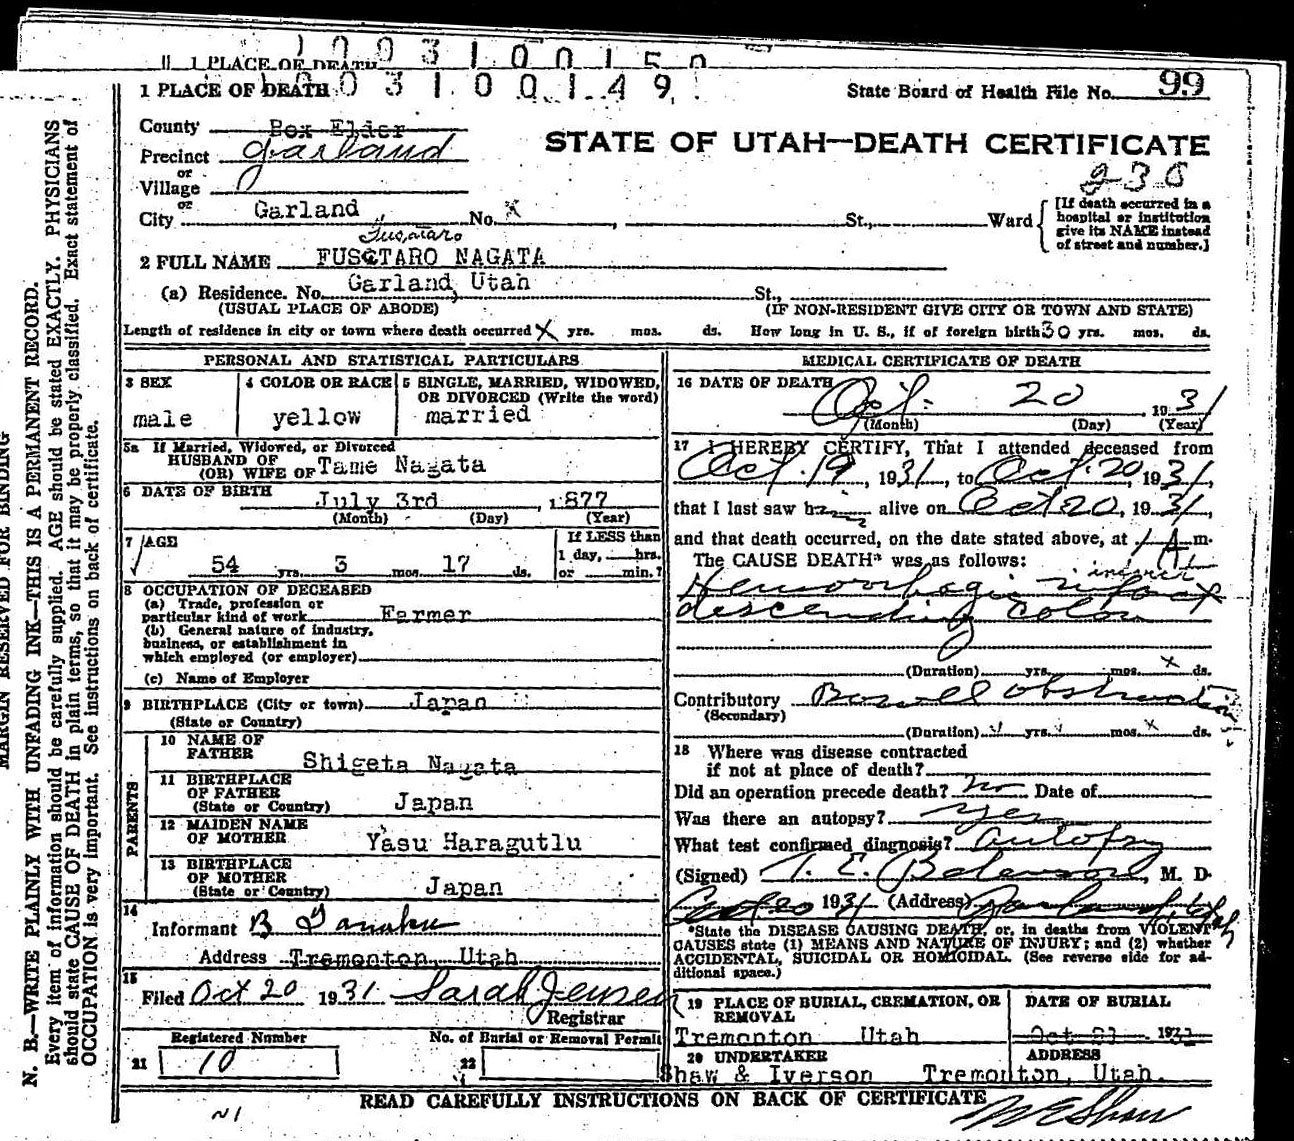 1003100150
11 1 PLACE OF DEATH
1 PLACE OF DEATH 1003100149 State Board of Health File No. 99
County Box Elder
STATE OF UTAH—DEATH CERTIFICATE
Precinct Garland
or
Village
230
or
City Garland No. X St., Ward
[If death occurred in a hospital or institution give its NAME instead of street and number.]
Fusataro
2 FULL NAME FUSOTARO NAGATA
(a) Residence. No. Garland, Utah St.,
(USUAL PLACE OF ABODE) (IF NON-RESIDENT GIVE CITY OR TOWN AND STATE)
Length of residence in city or town where death occurred X yrs. mos. ds. How long in U. S., if of foreign birth 30 yrs. mos. ds.
PERSONAL AND STATISTICAL PARTICULARS
3 SEX male
4 COLOR OR RACE yellow
5 SINGLE, MARRIED, WIDOWED, OR DIVORCED (Write the word) married
5a If Married, Widowed, or Divorced
HUSBAND OF
(OR) WIFE OF Tame Nagata
6 DATE OF BIRTH July 3rd, 1877
(Month) (Day) (Year)
7 AGE 54 yrs. 3 mos. 17 ds.
If LESS than 1 day, hrs. or min.?
8 OCCUPATION OF DECEASED
(a) Trade, profession or particular kind of work Farmer
(b) General nature of industry, business, or establishment in which employed (or employer)
(c) Name of Employer
9 BIRTHPLACE (City or town) Japan
(State or Country)
PARENTS
10 NAME OF FATHER Shigeta Nagata
11 BIRTHPLACE OF FATHER (State or Country) Japan
12 MAIDEN NAME OF MOTHER Yasu Haragutlu
13 BIRTHPLACE OF MOTHER (State or Country) Japan
14 Informant B Tanaku
Address Tremonton, Utah
15 Filed Oct 20 1931 Sarah Jensen
Registrar
Registered Number
21 10
No. of Burial or Removal Permit
22
MEDICAL CERTIFICATE OF DEATH
16 DATE OF DEATH Oct. 20, 1931
(Month) (Day) (Year)
17 I HEREBY CERTIFY, That I attended deceased from
Oct. 19, 1931, to Oct. 20, 1931,
that I last saw him alive on Oct 20, 1931,
and that death occurred, on the date stated above, at 1 A m.
The CAUSE DEATH* was as follows:
Hemorrhagic infarct
descending colon
(Duration) yrs. mos. X ds.
Contributory Bowel obstruction
(Secondary)
(Duration) yrs. mos. X ds.
18 Where was disease contracted
if not at place of death?
Did an operation precede death? no Date of
Was there an autopsy? yes
What test confirmed diagnosis? autopsy
(Signed) T. E. Betenson, M. D.
Oct 20 1931 (Address) Garland, Utah
*State the DISEASE CAUSING DEATH, or, in deaths from VIOLENT
CAUSES state (1) MEANS AND NATURE OF INJURY; and (2) whether
ACCIDENTAL, SUICIDAL OR HOMICIDAL. (See reverse side for ad-
ditional space.)
19 PLACE OF BURIAL, CREMATION, OR REMOVAL
Tremonton Utah
DATE OF BURIAL
Oct 21 1931
20 UNDERTAKER
Shaw & Iverson
ADDRESS
Tremonton, Utah.
READ CAREFULLY INSTRUCTIONS ON BACK OF CERTIFICATE
W E Shaw
MARGIN RESERVED FOR BINDING
N. B.—WRITE PLAINLY WITH UNFADING INK—THIS IS A PERMANENT RECORD.
Every item of information should be carefully supplied. AGE should be stated EXACTLY. PHYSICIANS
should state CAUSE OF DEATH in plain terms, so that it may be properly classified. Exact statement of
OCCUPATION is very important. See instructions on back of certificate.